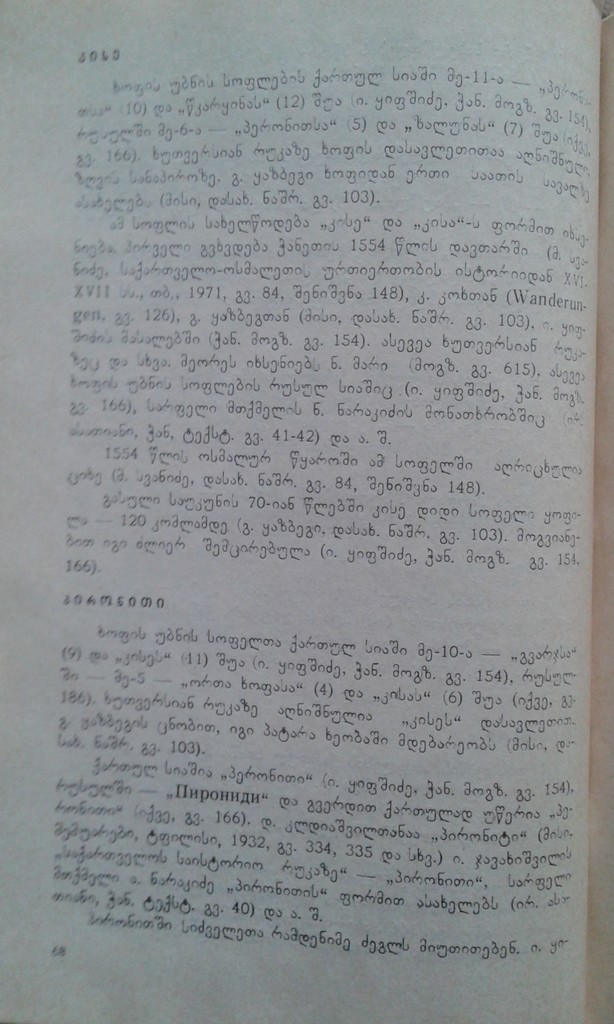 კისე
ხოფის უბნის სოფლების ქართულ სიაში მე-11-ა — „პერონი-
თსა“ (10) და „წკარყინას“ (12) შუა (ი. ყიფშიძე, ჭან. მოგზ. გვ. 154),
რუსულში მე-6-ა — „პერონითსა“ (5) და „ზალუნას“ (7) შუა (იქვე,
გვ. 166). ხუთვერსიან რუკაზე ხოფის დასავლეთითაა აღნიშნული,
ზღვის სანაპიროზე. გ. ყაზბეგი ხოფიდან ერთი საათის სავალზე
ასახელებს (მისი, დასახ. ნაშრ. გვ. 103).
ამ სოფლის სახელწოდება „კისე“ და „კისა“-ს ფორმით იხსე-
ნიება. პირველი გვხვდება ჭანეთის 1554 წლის დავთარში (მ. სვა-
ნიძე, საქართველო-ოსმალეთის ურთიერთობის ისტორიიდან XVI-
XVII სს., თბ., 1971, გვ. 84, შენიშვნა 148), კ. კოხთან (Wanderun-
gen, გვ. 126), გ. ყაზბეგთან (მისი, დასახ. ნაშრ. გვ. 103), ი. ყიფ-
შიძის მასალებში (ჭან. მოგზ. გვ. 154). ასევეა ხუთვერსიან რუკა-
ზეც და სხვა. მეორეს იხსენიებს ნ. მარი (მოგზ. გვ. 615), ასევეა
ხოფის უბნის სოფლების რუსულ სიაშიც (ი. ყიფშიძე, ჭან. მოგზ.
გვ. 166), სარფელი მთქმელის ნ. ნარაკიძის მონათხრობშიც (ირ.
ასათიანი, ჭან, ტექსტ. გვ. 41-42) და ა. შ.
1554 წლის ოსმალურ წყაროში ამ სოფელში აღრიცხულია
ციხე (მ. სვანიძე, დასახ. ნაშრ. გვ. 84, შენიშვნა 148).
გასული საუკუნის 70-იან წლებში კისე დიდი სოფელი ყოფი-
ლა — 120 კომლამდე (გ. ყაზბეგი, დასახ. ნაშრ. გვ. 103). მოგვიანე-
ბით იგი ძლიერ შემცირებულა (ი. ყიფშიძე, ჭან. მოგზ. გვ. 154,
166).
პირონითი
ხოფის უბნის სოფელთა ქართულ სიაში მე-10-ა — „გვარჯსა“
(9) და „კისეს“ (11) შუა (ი. ყიფშიძე, ჭან. მოგზ. გვ. 154), რუსულ-
ში — მე-5 — „ორთა ხოფასა“ (4) და „კისას“ (6) შუა (იქვე, გვ.
186). ხუთვერსიან რუკაზე აღნიშნულია „კისეს“ დასავლეთით.
გ. ყაზბეგის ცნობით, იგი პატარა ხეობაში მდებარეობს (მისი, და-
სახ. ნაშრ. გვ. 103).
ქართულ სიაშია „პერონითი“ (ი. ყიფშიძე, ჭან. მოგზ. გვ. 154),
რუსულში — „Пирониди“ და გვერდით ქართულად უწერია „პე-
რონითი“ (იქვე, გვ. 166). დ. კლდიაშვილთანაა „პირონიტი“ (მისი-
მემუარები, ტფილისი, 1932, გვ. 334, 335 და სხვ.) ი. ჯავახიშვილის
„საქართველოს საისტორიო რუკაზე“ — „პირონითი“, სარფელი
მთქმელი ა. ნარაკიძე „პირონითის“ ფორმით ასახელებს (ირ. ასა-
თიანი, ჭან. ტექსტ. გვ. 40) და ა. შ.
პირონითში სიძველეთა რამდენიმე ძეგლს მიუთითებენ. ი. ყი-
68